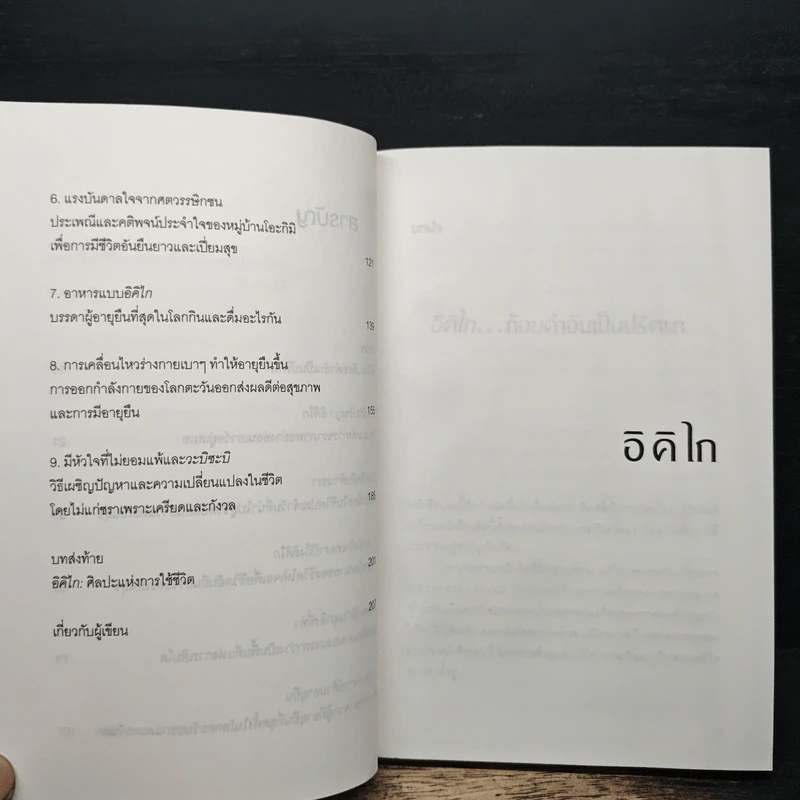 6. แรงบันดาลใจจากศตวรรษิกชน
ประเพณีและคติพจน์ประจำใจของหมู่บ้านโอะกิมิ
เพื่อการมีชีวิตอันยืนยาวและเปี่ยมสุข
121
7. อาหารแบบอิคิไก
บรรดาผู้อายุยืนที่สุดในโลกกินและดื่มอะไรกัน
139
8. การเคลื่อนไหวร่างกายเบาๆ ทำให้อายุยืนขึ้น
การออกกำลังกายของโลกตะวันออกส่งผลดีต่อสุขภาพ
และการมีอายุยืน
155
9. มีหัวใจที่ไม่ยอมแพ้และวะบิซะบิ
วิธีเผชิญปัญหาและความเปลี่ยนแปลงในชีวิต
โดยไม่แก่ชราเพราะเครียดและกังวล
185
บทส่งท้าย
201
อิคิไก: ศิลปะแห่งการใช้ชีวิต
207
เกี่ยวกับผู้เขียน
อิคิไก